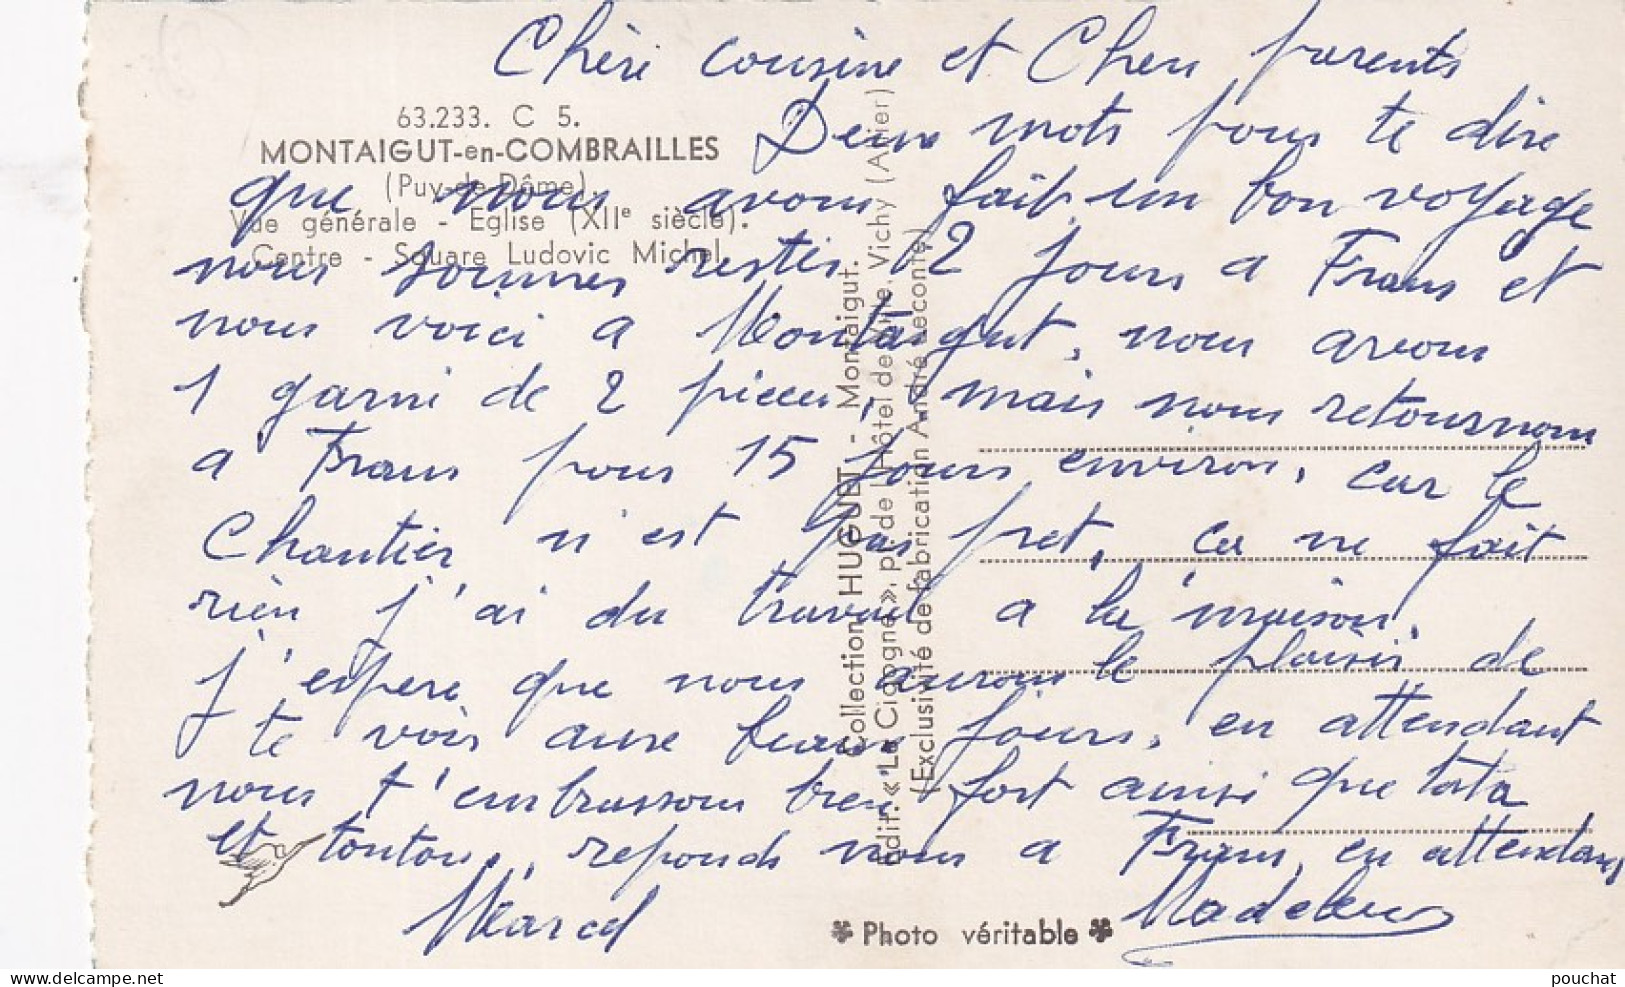 Chère cousine et Cher parents
63.233. C 5.
MONTAIGUT-en-COMBRAILLES
(Puy-de-Dôme).
Vue générale - Eglise (XIIe siècle).
Centre - Square Ludovic Michel.
Deux mots pour te dire
que nous avons fait un bon voyage
nous sommes restés 2 jours a Frans et
nous voici a Montaigut, nous avons
1 garni de 2 pièces, mais nous retournons
a Frans pour 15 jours environ, car le
Chantier n'est pas pret, ca ne fait
rien j'ai du travail a la maison.
j'espere que nous aurons le plaisir de
te voir aux beaux jours, en attendant
nous t'embrassons bien fort ainsi que tata
et tonton, reponds nous a Frans, en attendant
Marcel Madeleine
Collection HUGUET - Montaigut.
Edit. « La Cigogne », pl. de l'Hôtel de Ville. Vichy (Allier)
(Exclusivité de fabrication André Leconte)
Photo véritable
delcampe.net
pouchat